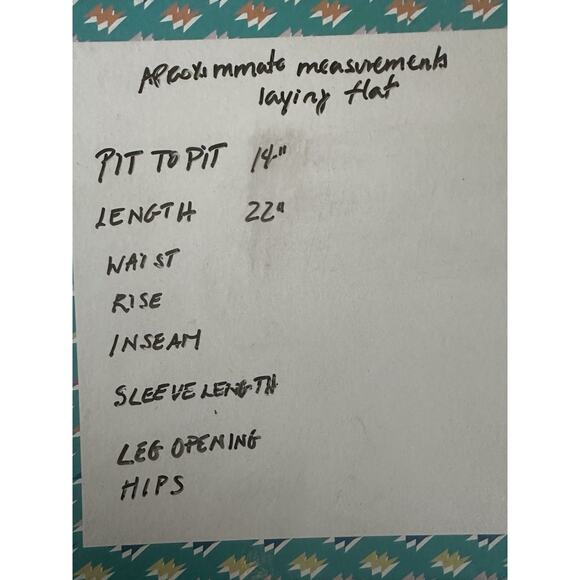 Approximmate measurements
laying flat
PIT TO PIT 14"
LENGTH 22"
WAIST
RISE
INSEAM
SLEEVE LENGTH
LEG OPENING
HIPS